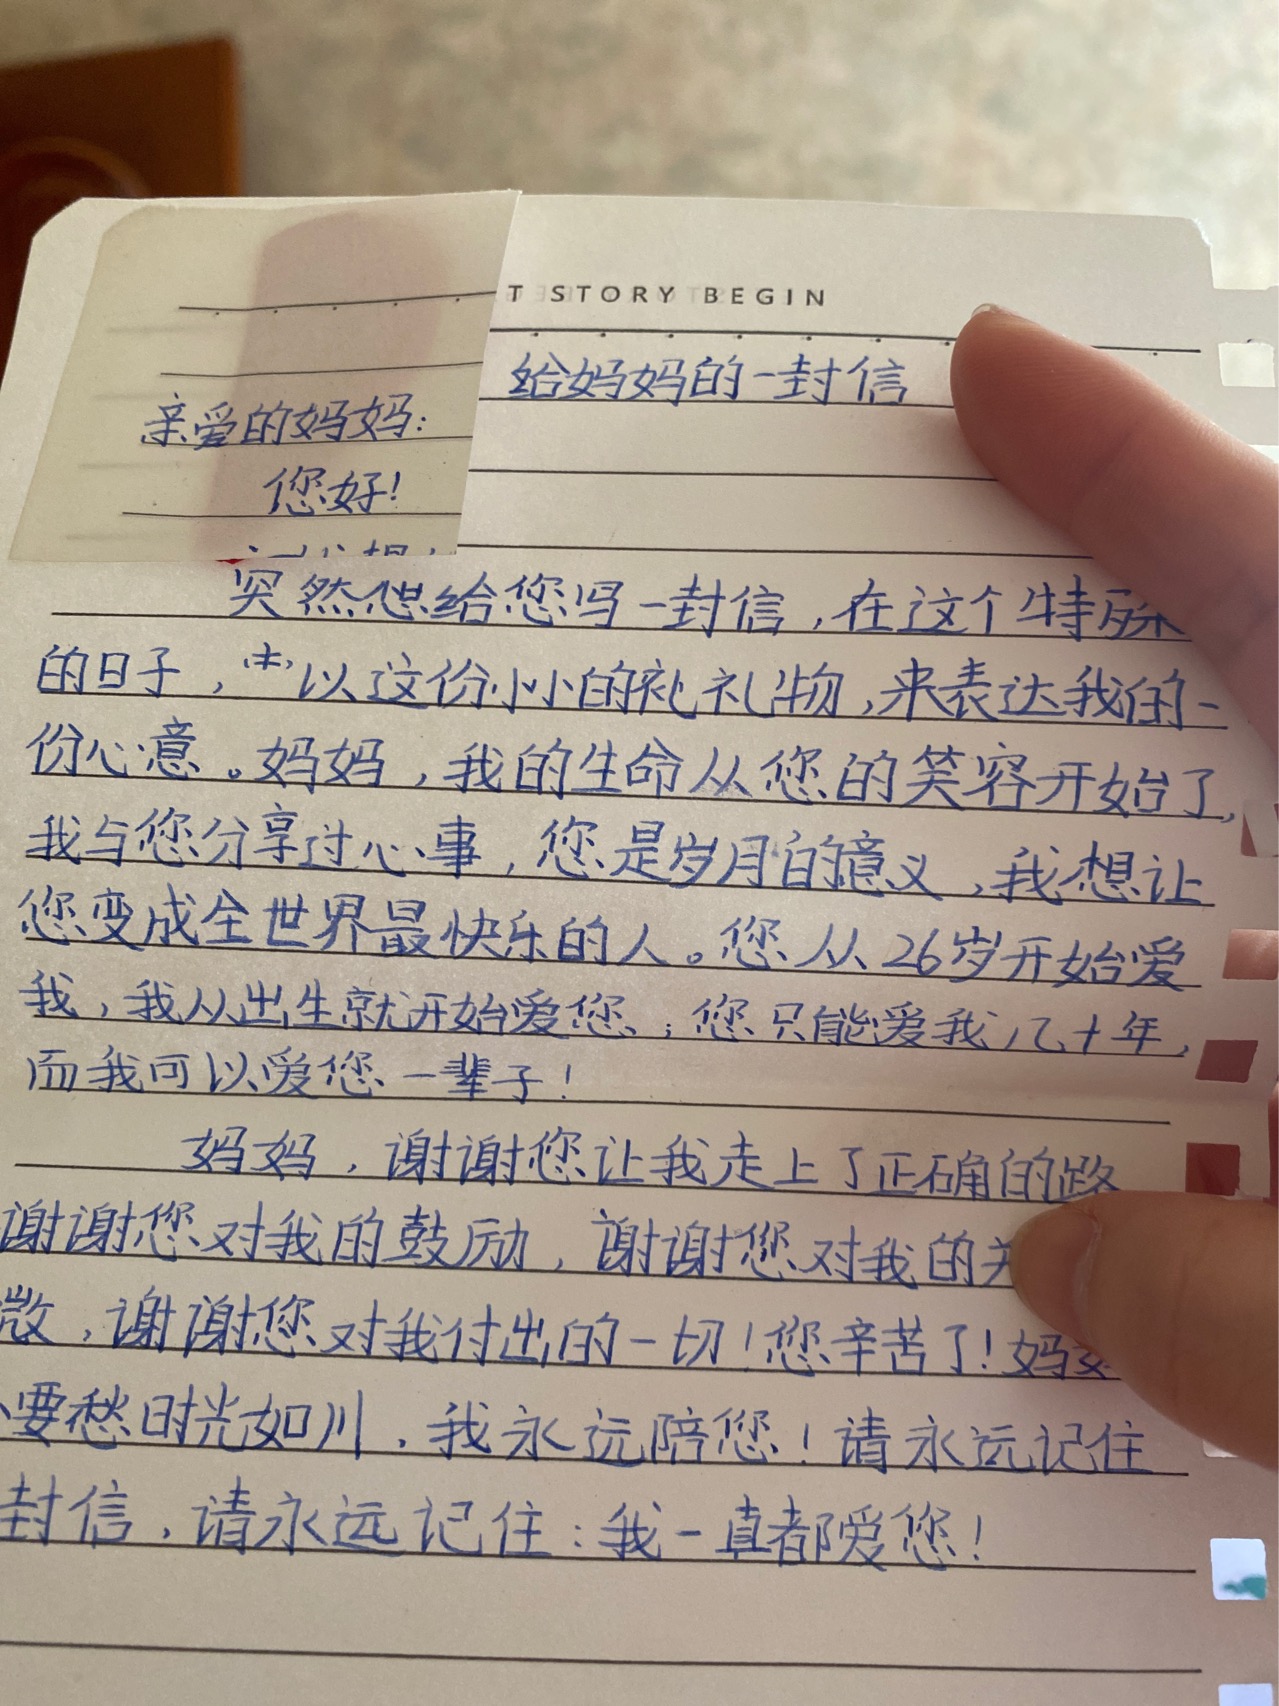 T STORY BEGIN
给妈妈的一封信
亲爱的妈妈:
您好!
突然想给您写一封信,在这个特殊
的日子,以这份小小的礼物,来表达我的一
份心意。妈妈,我的生命从您的笑容开始了,
我与您分享过心事,您是岁月的意义,我想让
您变成全世界最快乐的人。您从26岁开始爱
我,我从出生就开始爱您,您只能爱我几十年,
而我可以爱您一辈子!
妈妈,谢谢您让我走上了正确的路
谢谢您对我的鼓励,谢谢您对我的关
微,谢谢您对我付出的一切!您辛苦了!妈妈
要愁时光如川,我永远陪您!请永远记住
封信,请永远记住:我一直都爱您!